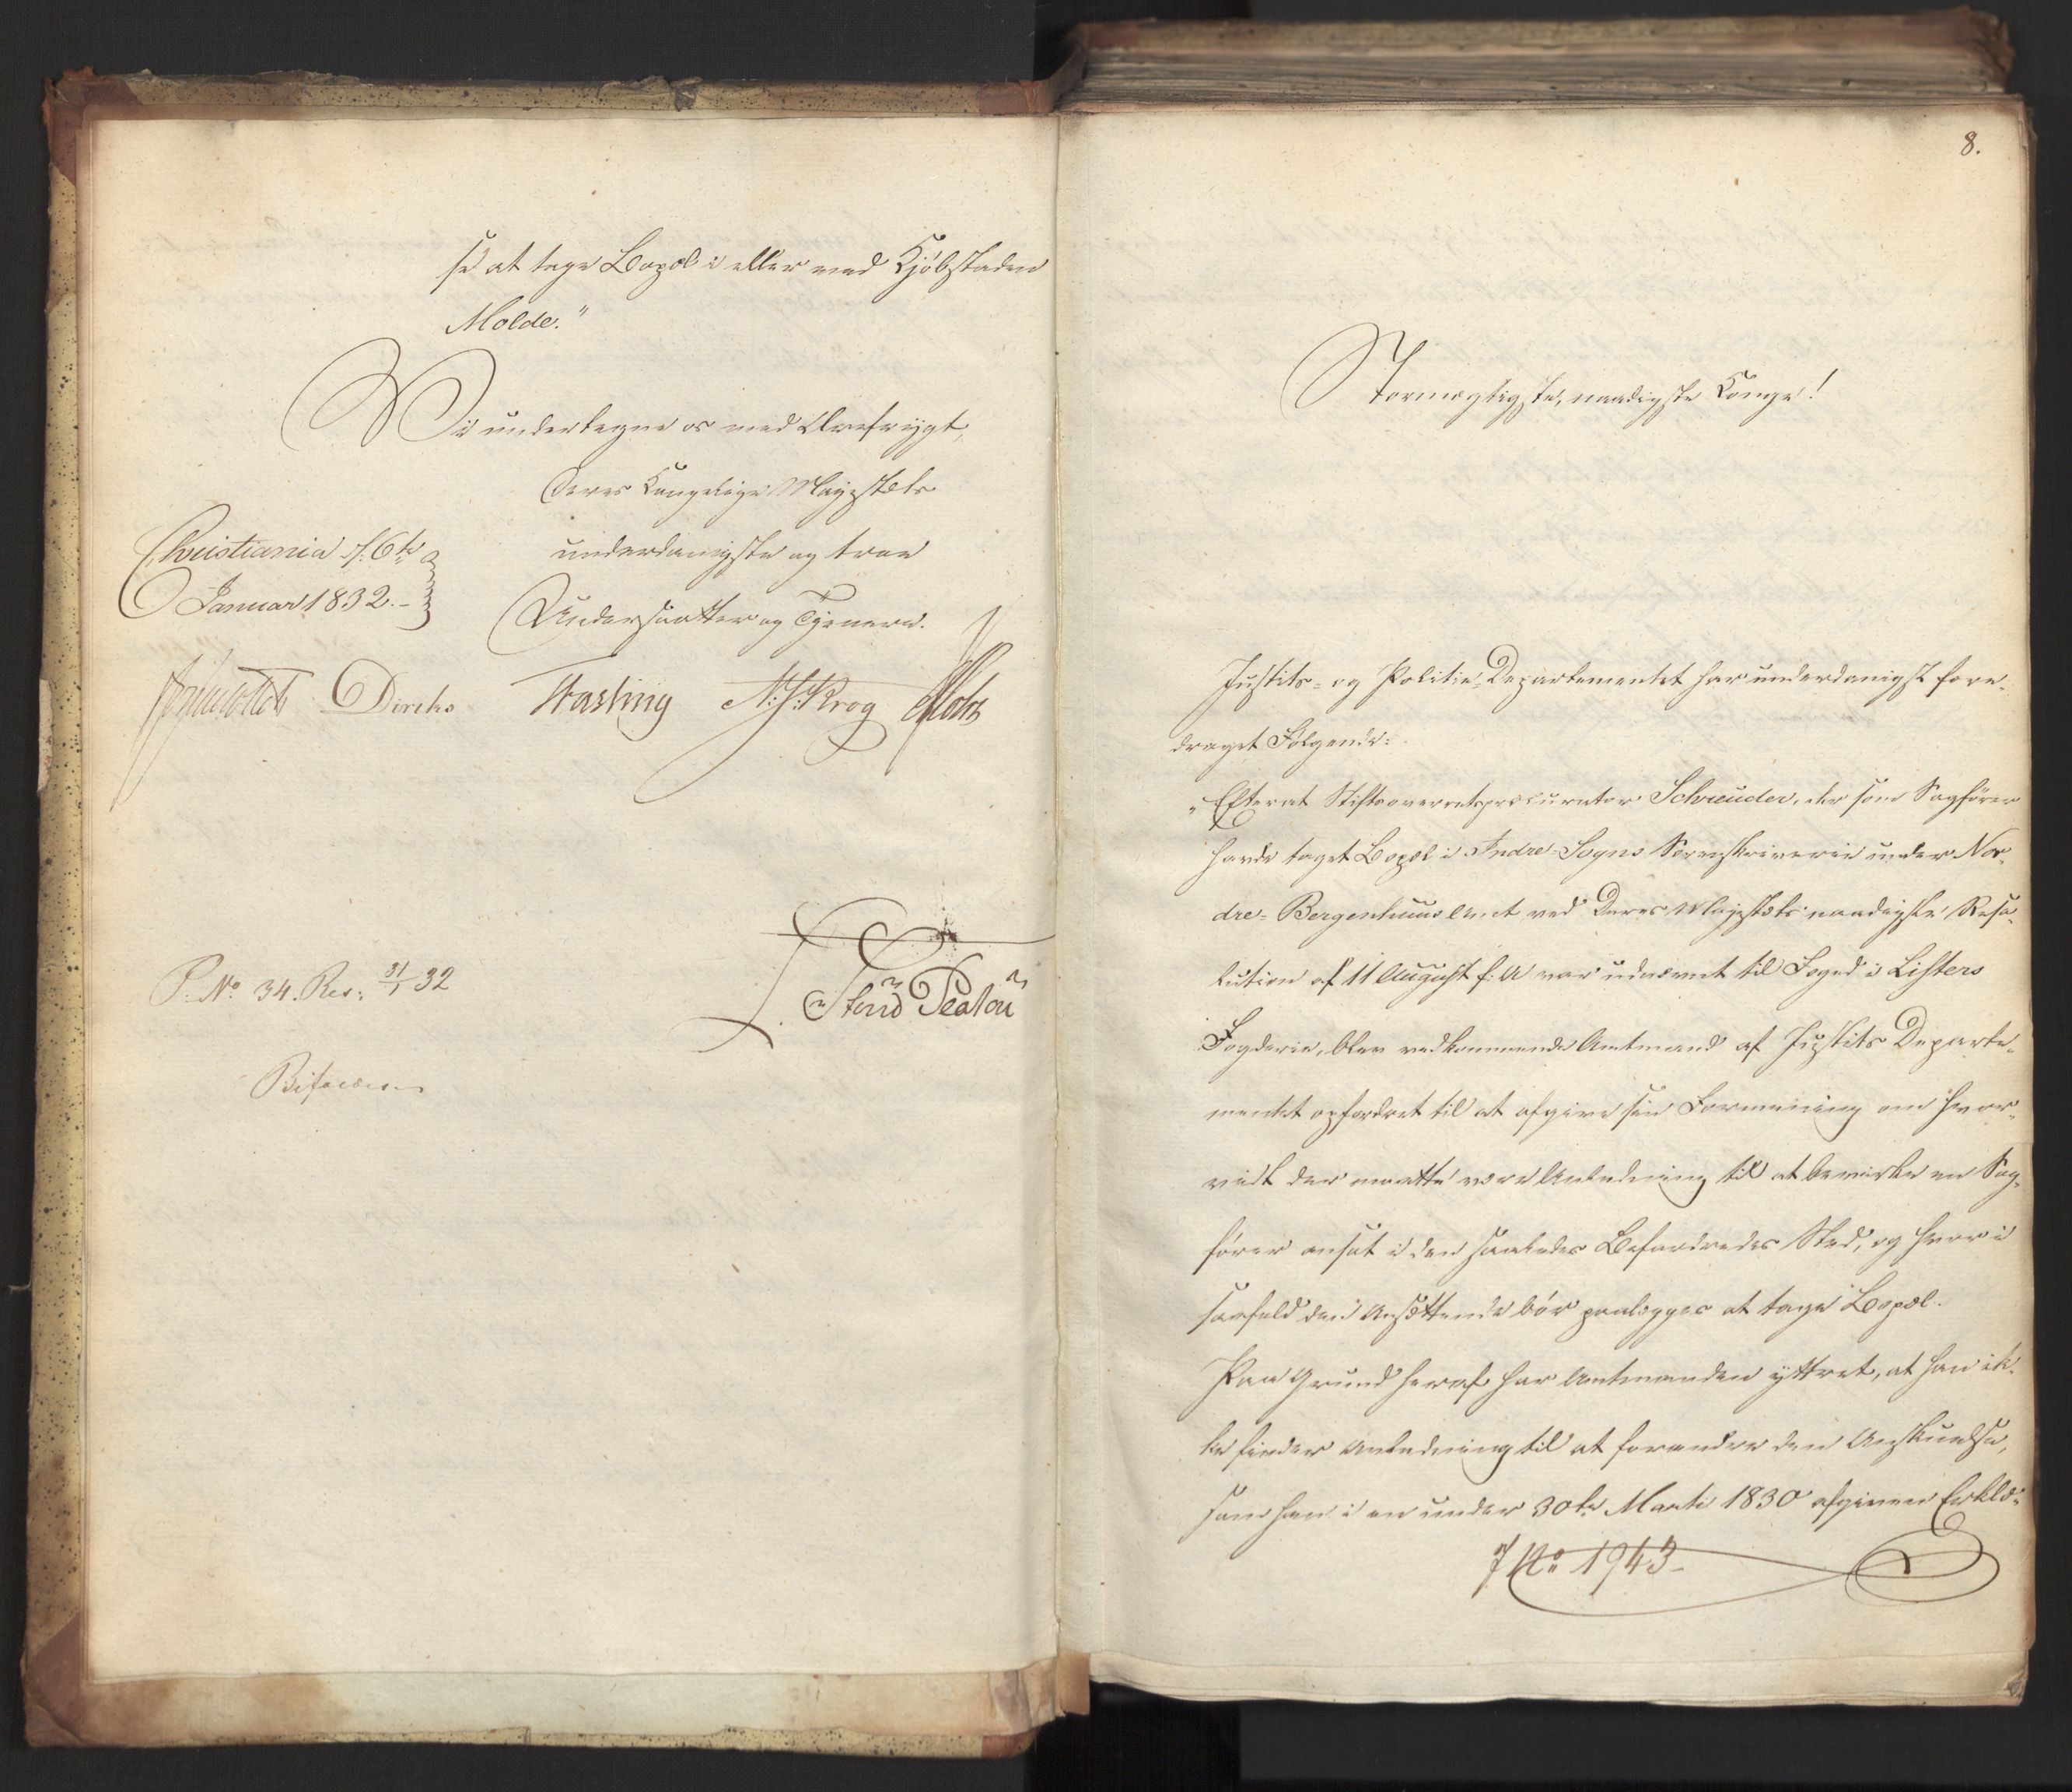 se at tage Bopæl i eller ved Kjöbstaden
Molde."
Vi undertegne os med Ærefrygt,
Deres Kongelige Majestæts
Christiania d. 6te
underdanigste og troe
Januar 1832.-
Undersaatter og Tjenere.
Diriks Fasting N: J: Krog
P. No 34. Res: 31/1 32
Bifaldes
8.
Stormægtigste, naadigste Konge!
Justits- og Politie-Departementet har underdanigst fore-
draget Fölgende:
"Efterat Stiftsoverretsprocurator Schreuder, der som Sagförer
havde taget Bopæl i Indre Sogns Sorenskriverie under Nor-
dre-Bergenhuus Amt ved Deres Majestæts naadigste Reso-
lution af 11 August f: A var udnævnt til Foged i Listers
Fogderie, blev vedkommende Amtmand af Justits Departe-
mentet opfordret til at afgive sin Formening om hvor-
vidt der maatte være Anledning til at bevirke en Sag-
förer ansat i den saaledes Befordredes Sted, og hvor i
saafald den Ansættende bör paalægges at tage Bopæl.
Paa Grund heraf har Amtmanden yttret, at han ik-
ke finder Anledning til at forandre den Anskuelse,
som han i en under 30te Marti 1830 afgiven Erklæ-
7 No 1943-